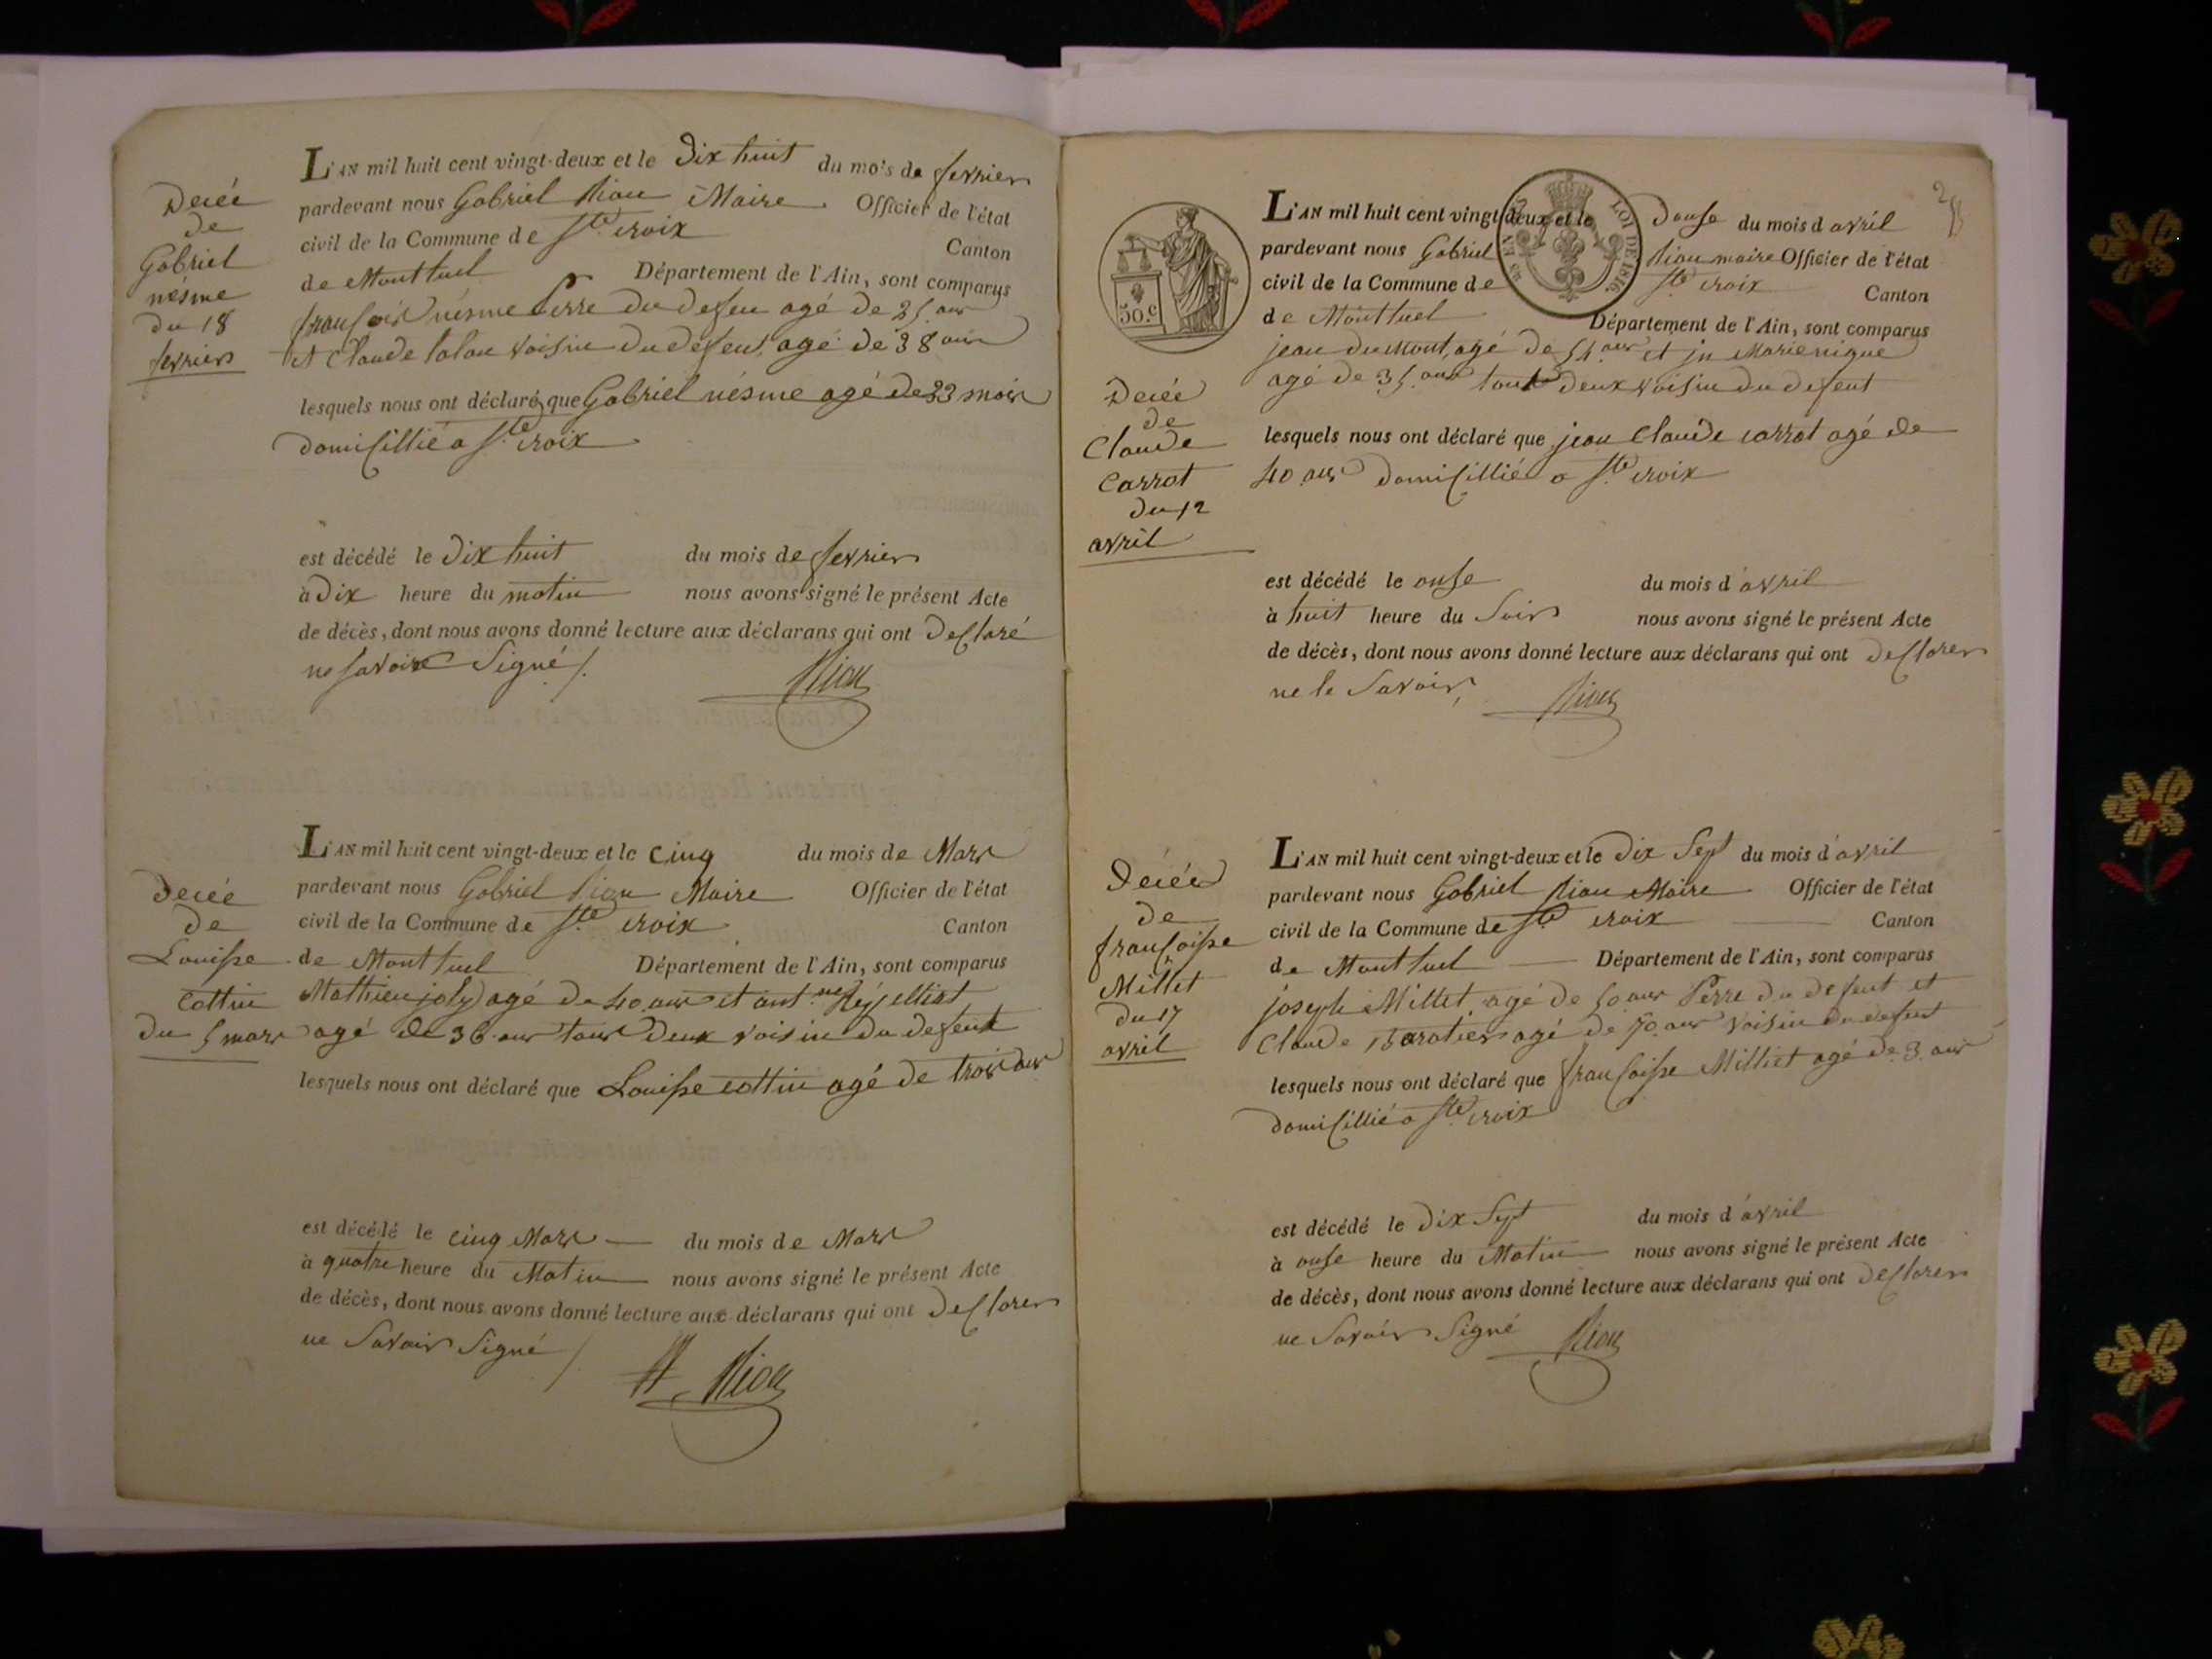 Decée
de
Gabriel
nésme
du 18
fevrier
L'AN mil huit cent vingt-deux et le Dix huit du mois de fevrier
pardevant nous Gabriel Riou Maire Officier de l'état
civil de la Commune de Ste croix Canton
de Montluel Département de l'Ain, sont comparus
fransois nésme Perre du defeu agé de 25 ans
et Claude lalou voisin du defeut, agé de 38 ans
lesquels nous ont déclaré que Gabriel nésme agé de 23 mois
domisillié a Ste croix
est décédé le Dix huit du mois de fevrier
à Dix heure du matin nous avons signé le présent Acte
de décès, dont nous avons donné lecture aux déclarans qui ont Desclaré
ne savoir Signé /.
Riou
Decée
de
Louisse
Cottin
du 5 mars
L'AN mil huit cent vingt-deux et le cinq du mois de Mars
pardevant nous Gabriel Riou Maire Officier de l'état
civil de la Commune de Ste croix Canton
de Montluel Département de l'Ain, sont comparus
Mathieu joly agé de 40 ans et ant.ne
agé de 36 ans tous deux voisin du defeut
lesquels nous ont déclaré que Louisse cottin agé de trois ans
est décédé le cinq Mars du mois de Mars
à quatre heure du Matin nous avons signé le présent Acte
de décès, dont nous avons donné lecture aux déclarans qui ont Desclarer
ne Savoir Signé /
Riou
2
50.c
LOI DE 1816.
Decée
de
Claude
Carrot
du 12
avril
L'AN mil huit cent vingt-deux et le Douse du mois d avril
pardevant nous Gabriel Riou maire Officier de l'état
civil de la Commune de Ste croix Canton
de Montluel Département de l'Ain, sont comparus
jean dumont, agé de 54 ans et jn Marie nique
agé de 35 ans tout deux voisin du defeut
lesquels nous ont déclaré que jean Claude carrot agé de
40 ans Domisillié a Ste croix
est décédé le onse du mois d avril
à huit heure du Soir nous avons signé le présent Acte
de décès, dont nous avons donné lecture aux déclarans qui ont Desclarer
ne le Savoir,
Riou
Decée
de
fransoisse
Millet
du 17
avril
L'AN mil huit cent vingt-deux et le Dix Sept du mois d'avril
pardevant nous Gabriel Riou Maire Officier de l'état
civil de la Commune de Ste croix Canton
de Montluel Département de l'Ain, sont comparus
joseph Millet agé de 50 ans Perre du defeut et
Claude agé de 50 ans Voisin du defeut
lesquels nous ont déclaré que fransoisse Milliet agé de 3 ans
domisillié a Ste croix
est décédé le Dix Sept du mois d'avril
à onse heure du Matin nous avons signé le présent Acte
de décès, dont nous avons donné lecture aux déclarans qui ont Desclarer
ne Savoir Signé
Riou